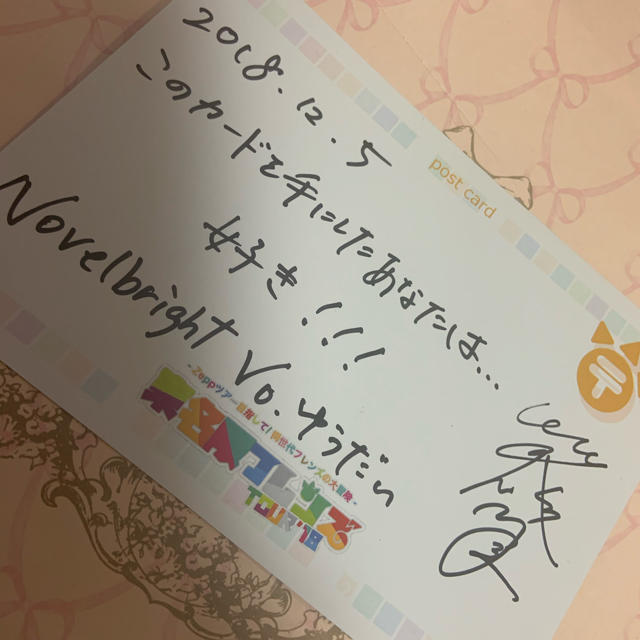 2018.12.5
post card
このカードを手にしたあなたは...
好き!!!
Novelbright Vo. ゆうだい
-Zeppツアー目指して!同世代フレンズの大冒険-
フレンズ
TOUR'18